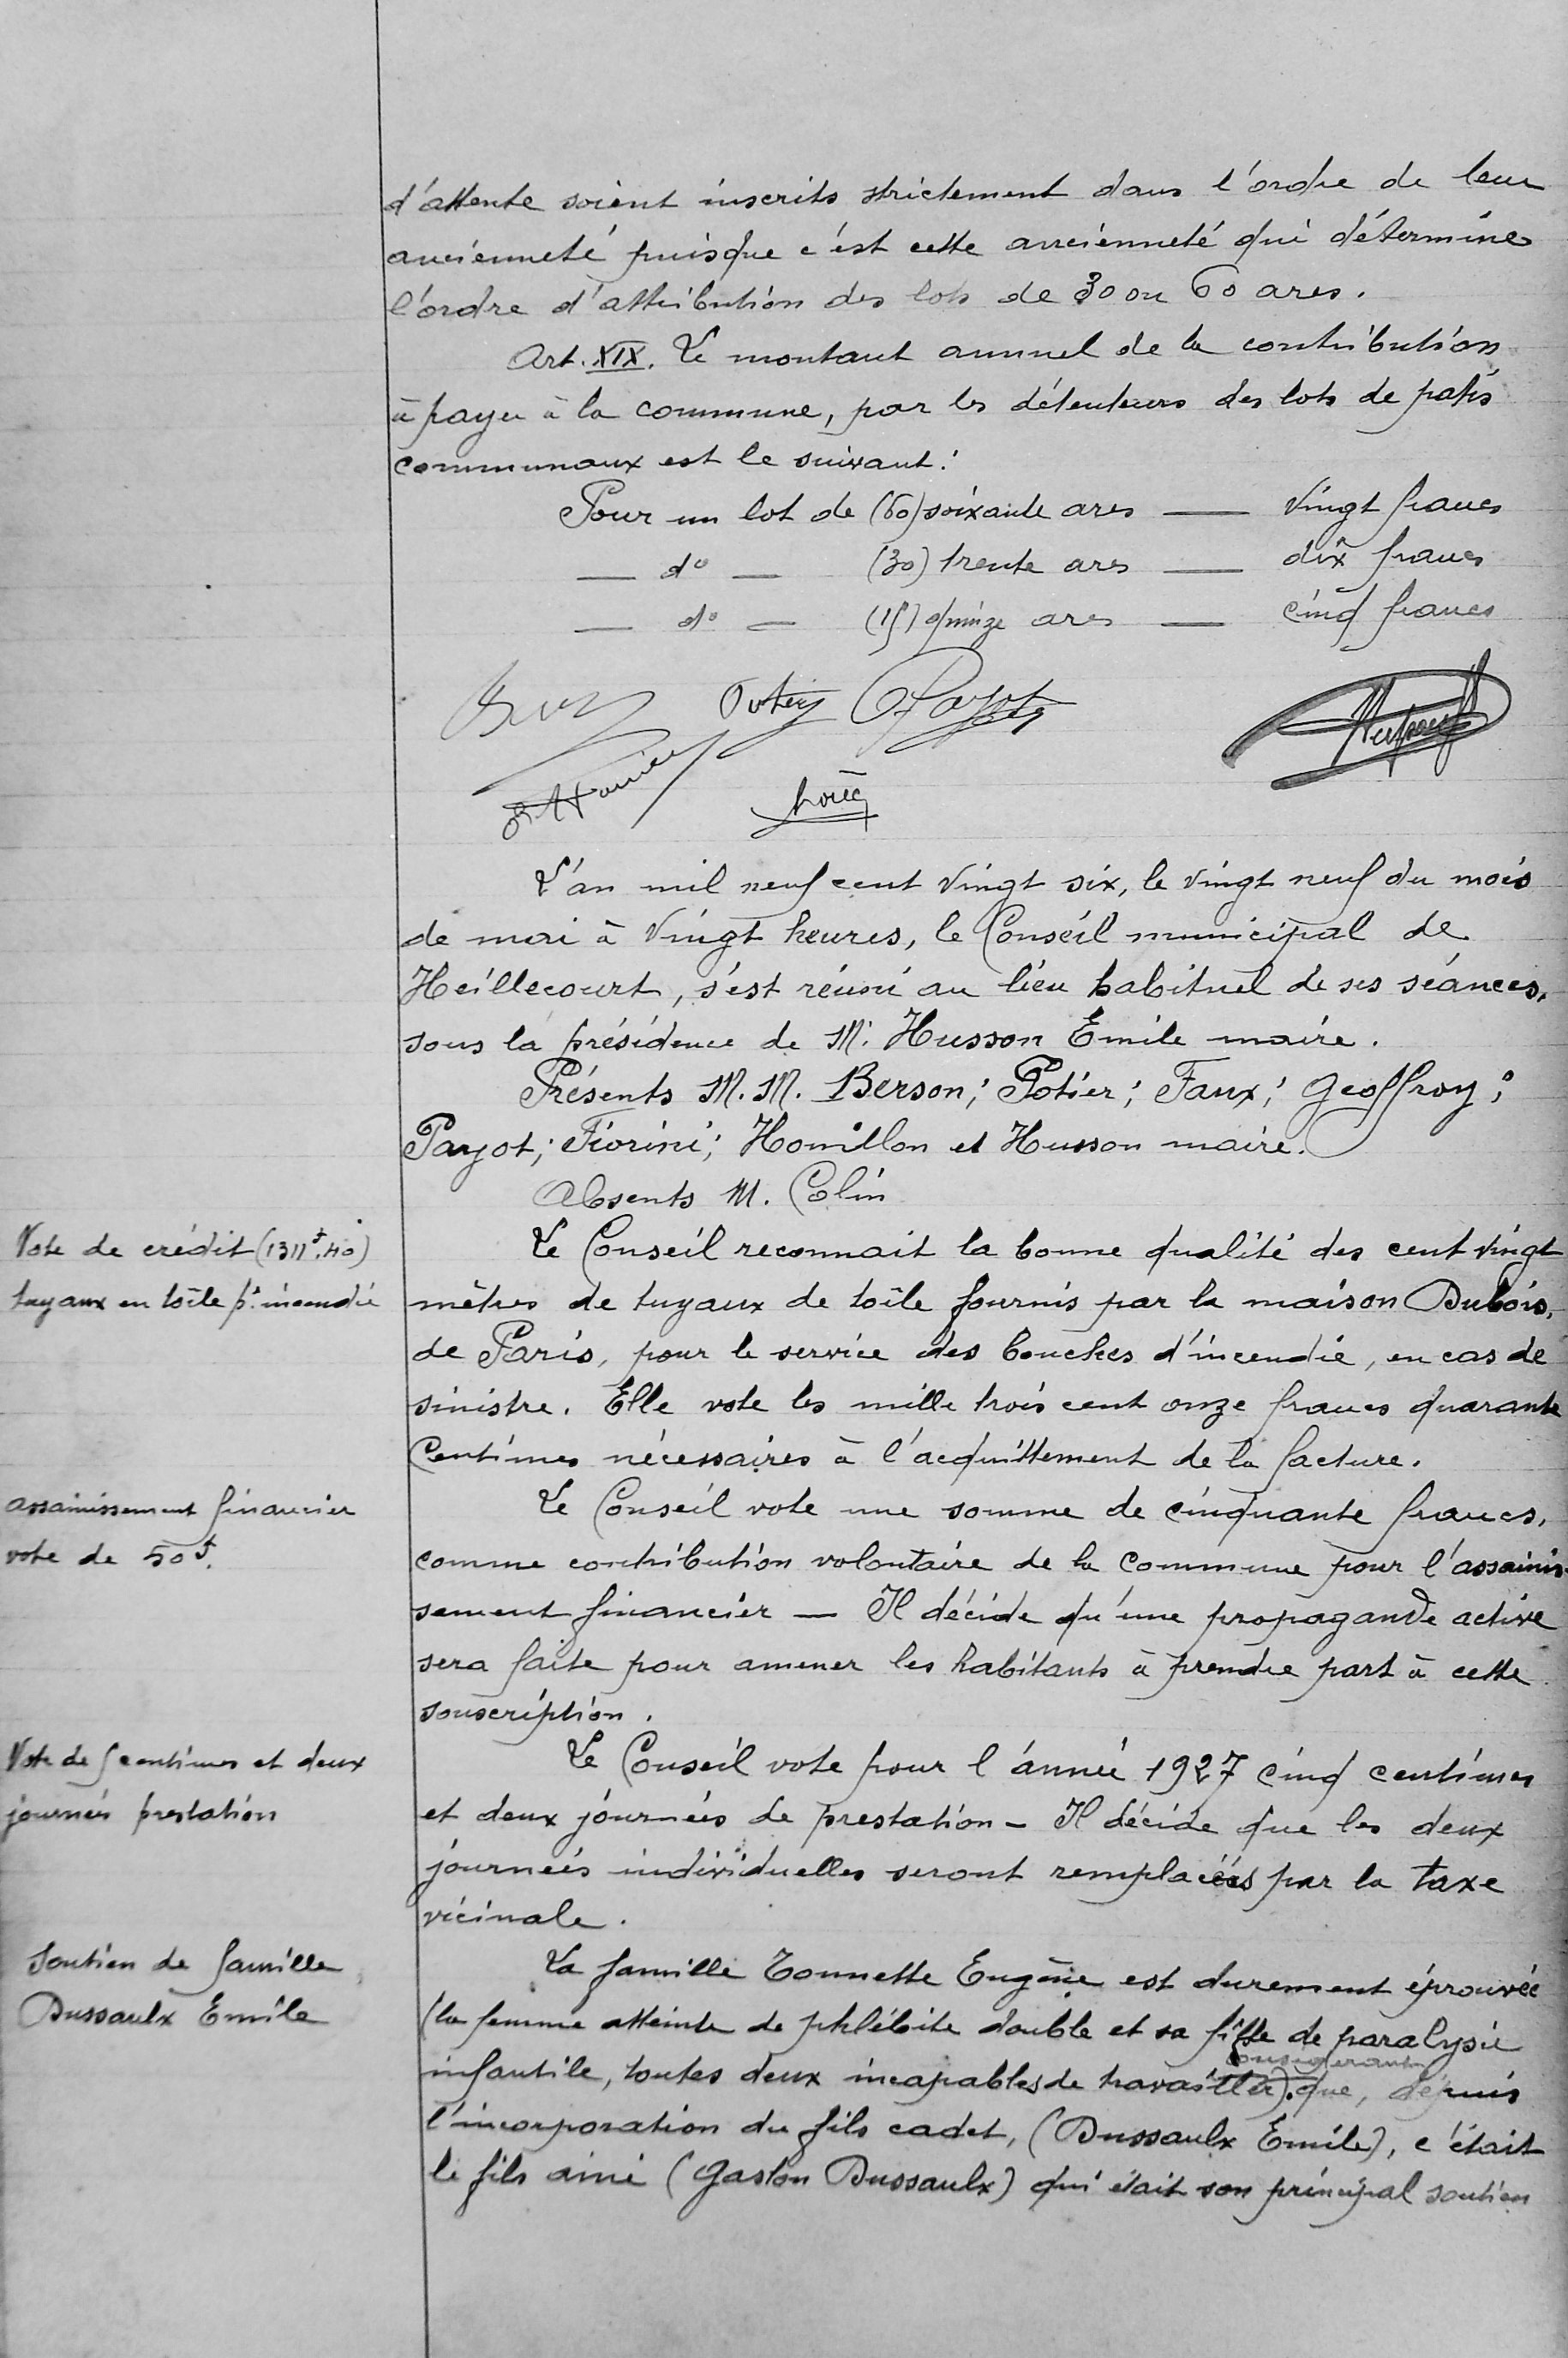 d'attente soient inscrits strictement dans l'ordre de leur
ancienneté puisque c'est cette ancienneté qui détermine
l'ordre d'attribution des lots de 30 ou 60 ares.
Art. XIX. Le montant annuel de la contribution
à payer à la commune, par les détenteurs des lots de patis
communaux est le suivant :
Pour un lot de (60) soixante ares — Vingt francs
— d° — (30) trente ares — dix francs
— d° — (15) quinze ares — cinq francs
Payot
L'an mil neuf cent vingt six, le vingt neuf du mois
de mai à Vingt heures, le Conseil municipal de
Heillecourt, s'est réuni au lieu habituel de ses séances,
sous la présidence de Mr. Husson Emile maire.
Présents M. M. Berson ; Potier ; Faux ; Geoffroy ;
Payot ; Fiorini ; Houillon et Husson maire.
Absents M. Colin
Vote de crédit (1311f.40)
tuyaux en toile pr. incendie
Le Conseil reconnait la bonne qualité des cent vingt
mètres de tuyaux de toile fournis par la maison Dubois,
de Paris, pour le service des bouches d'incendie, en cas de
sinistre. Elle vote les mille trois cent onze francs quarante
Centimes nécessaires à l'acquittement de la facture.
assainissement financier
vote de 50f.
Le Conseil vote une somme de cinquante francs,
comme contribution volontaire de la Commune pour l'assainis-
sement financier — Il décide qu'une propagande active
sera faite pour amener les habitants à prendre part à cette
souscription.
Vote de 5 centimes et deux
journées prestation
Le Conseil vote pour l'année 1927 cinq centimes
et deux journées de prestation - Il décide que les deux
journées individuelles seront remplacées par la taxe
vicinale.
Soutien de famille
Dussaulx Emile
La famille Tonnette Eugène est durement éprouvée
(la femme atteinte de phlébite double et sa fille de paralysie
infantile, toutes deux incapables de travailler). considérant que, depuis
l'incorporation du fils cadet, (Dussaulx Emile), c'était
le fils ainé (Gaston Dussaulx) qui était son principal soutien